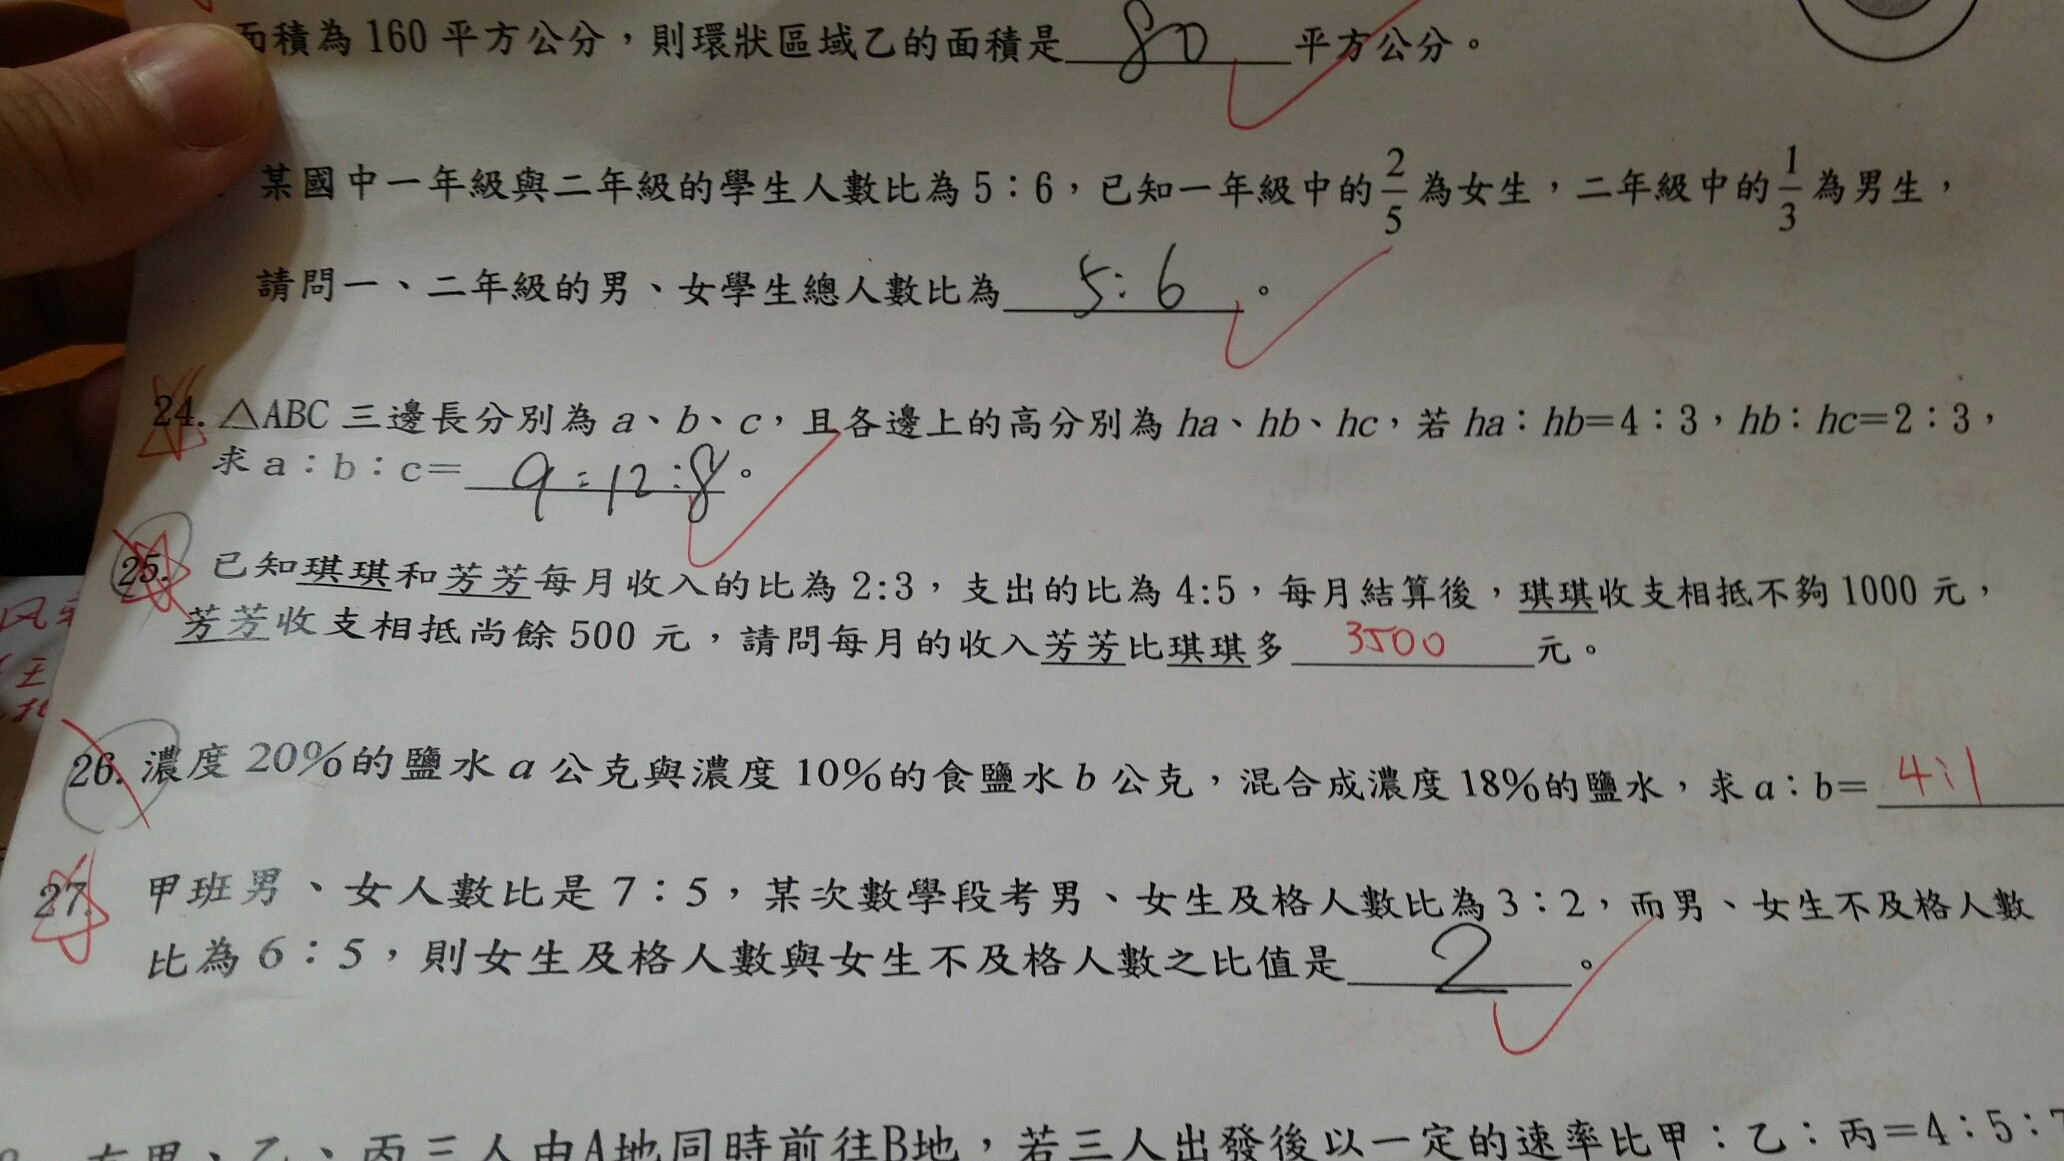 面積為160平方公分，則環狀區域乙的面積是 80 平方公分。
某國中一年級與二年級的學生人數比為5：6，已知一年級中的2/5為女生，二年級中的1/3為男生，
請問一、二年級的男、女學生總人數比為 5:6 。
24. △ABC三邊長分別為a、b、c，且各邊上的高分別為ha、hb、hc，若ha：hb=4：3，hb：hc=2：3，
求a：b：c= 9:12:8 。
25. 已知琪琪和芳芳每月收入的比為2:3，支出的比為4:5，每月結算後，琪琪收支相抵不夠1000元，
芳芳收支相抵尚餘500元，請問每月的收入芳芳比琪琪多 3500 元。
26. 濃度20%的鹽水a公克與濃度10%的食鹽水b公克，混合成濃度18%的鹽水，求a：b= 4:1
27. 甲班男、女人數比是7：5，某次數學段考男、女生及格人數比為3：2，而男、女生不及格人數
比為6：5，則女生及格人數與女生不及格人數之比值是 2 。
甲、乙、丙三人由A地同時前往B地，若三人出發後以一定的速率比甲：乙：丙=4：5：7